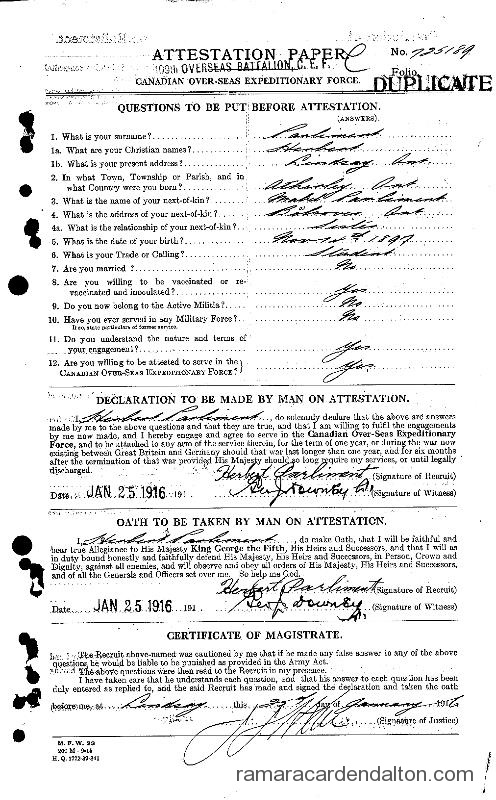 No. 725189
ATTESTATION PAPER
109th OVERSEAS BATTALION, C. E. F.
Folio.
CANADIAN OVER-SEAS EXPEDITIONARY FORCE.
DUPLICATE
QUESTIONS TO BE PUT BEFORE ATTESTATION.
(ANSWERS)
1. What is your surname? Parliment
1a. What are your Christian names? Herbert
1b. What is your present address? Lindsay Ont
2. In what Town, Township or Parish, and in
what Country were you born? Atherley Ont
3. What is the name of your next-of-kin? Mabel Parliment
4. What is the address of your next-of-kin? Ont
4a. What is the relationship of your next-of-kin? Sister
5. What is the date of your birth? Nov 14th 1897
6. What is your Trade or Calling? Student
7. Are you married? No
8. Are you willing to be vaccinated or re-
vaccinated and inoculated? Yes
9. Do you now belong to the Active Militia? No
10. Have you ever served in any Military Force? No
If so, state particulars of former service.
11. Do you understand the nature and terms of
your engagement? Yes
12. Are you willing to be attested to serve in the
CANADIAN OVER-SEAS EXPEDITIONARY FORCE? Yes
DECLARATION TO BE MADE BY MAN ON ATTESTATION.
I, Herbert Parliment, do solemnly declare that the above are answers
made by me to the above questions and that they are true, and that I am willing to fulfil the engagements
by me now made, and I hereby engage and agree to serve in the Canadian Over-Seas Expeditionary
Force, and to be attached to any arm of the service therein, for the term of one year, or during the war now
existing between Great Britain and Germany should that war last longer than one year, and for six months
after the termination of that war provided His Majesty should so long require my services, or until legally
discharged.
Herbert Parliment (Signature of Recruit)
Date JAN 25 1916 191 Downey (Signature of Witness)
OATH TO BE TAKEN BY MAN ON ATTESTATION.
I, Herbert Parliment, do make Oath, that I will be faithful and
bear true Allegiance to His Majesty King George the Fifth, His Heirs and Successors, and that I will as
in duty bound honestly and faithfully defend His Majesty, His Heirs and Successors, in Person, Crown and
Dignity, against all enemies, and will observe and obey all orders of His Majesty, His Heirs and Successors,
and of all the Generals and Officers set over me. So help me God.
Herbert Parliment (Signature of Recruit)
Date JAN 25 1916 191 Downey (Signature of Witness)
CERTIFICATE OF MAGISTRATE.
The Recruit above-named was cautioned by me that if he made any false answer to any of the above
questions he would be liable to be punished as provided in the Army Act.
The above questions were then read to the Recruit in my presence.
I have taken care that he understands each question, and that his answer to each question has been
duly entered as replied to, and the said Recruit has made and signed the declaration and taken the oath
before me, at Lindsay this day of January 1916
(Signature of Justice)
M. F. W. 23
H. Q. 1772-39-241
ramaracardendalton.com